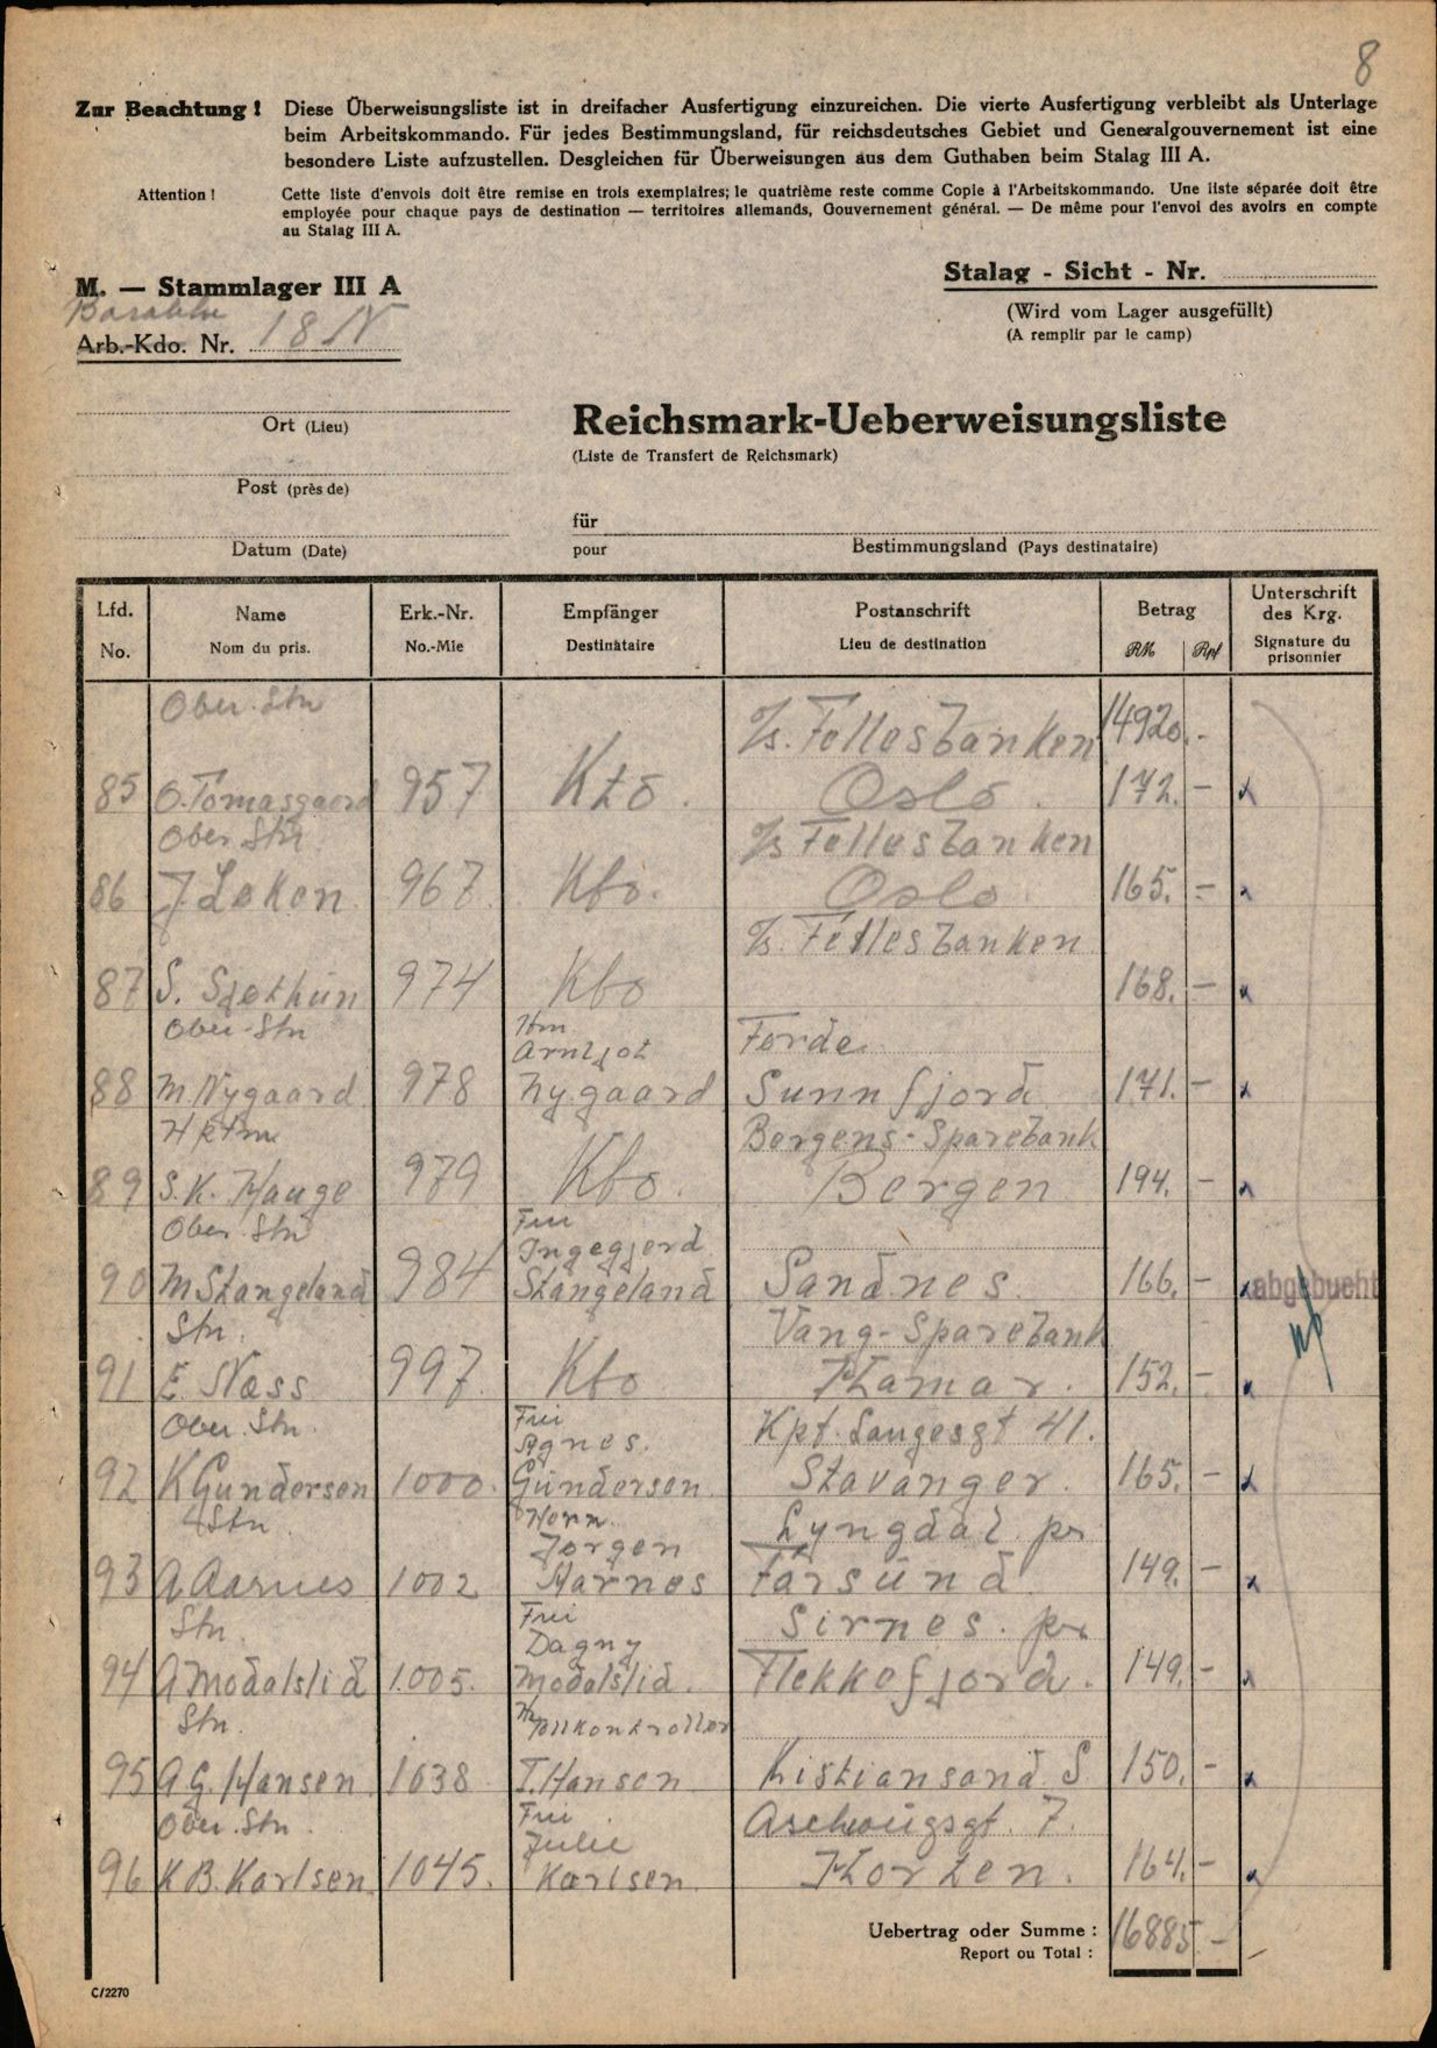 8
Zur Beachtung! Diese Überweisungsliste ist in dreifacher Ausfertigung einzureichen. Die vierte Ausfertigung verbleibt als Unterlage
beim Arbeitskommando. Für jedes Bestimmungsland, für reichsdeutsches Gebiet und Generalgouvernement ist eine
besondere Liste aufzustellen. Desgleichen für Überweisungen aus dem Guthaben beim Stalag III A.
Attention! Cette liste d'envois doit être remise en trois exemplaires; le quatrième reste comme Copie à l'Arbeitskommando. Une liste séparée doit être
employée pour chaque pays de destination — territoires allemands, Gouvernement général. — De même pour l'envoi des avoirs en compte
au Stalag III A.
M. — Stammlager III A
Stalag - Sicht - Nr.
(Wird vom Lager ausgefüllt)
(A remplir par le camp)
Arb.-Kdo. Nr. 18 N
Ort (Lieu)
Post (près de)
Datum (Date)
Reichsmark-Ueberweisungsliste
(Liste de Transfert de Reichsmark)
für
pour Bestimmungsland (Pays destinataire)
Lfd. Name Erk.-Nr. Empfänger Postanschrift Betrag Unterschrift des Krg.
No. Nom du pris. No.-Mle Destinataire Lieu de destination RM Rpf Signature du prisonnier
Ober.Stn A/s. Fellesbanken 14920.-
85 O. Tomasgaard 957 Kto. Oslo. 172. - x
Ober Stn A/s Fellesbanken
86 J Løken 967. Kto. Oslo. 165. - x
A/s. Fellesbanken
87 S. Sjøthun 974 Kto 168. - x
Ober-Stn Hrn Arntjot Førde
88 M. Nygaard 978 Nygaard Sunnfjord 171. - x
Hptm Bergens-Sparebank
89 S.K. Hauge 979 Kto. Bergen 194. - x
Ober.Stn Fru Ingegjerd
90 M Stangeland 984 Stangeland Sandnes. 166. - x abgebucht
Stn. Vang-Sparebank
91 E. Næss 997. Kto Hamar. 152. - x
Ober.Stn. Fru Agnes. Kpt. Langesgt 41.
92 K Gundersen 1000. Gundersen Stavanger. 165. - x
Stn. Herrn. Jørgen Lyngdal pr
93 A Aarnes 1002 Aarnes Farsund 149. - x
Stn. Fru Dagny Sirnes. pr
94 A Modalslid 1.005. Modalslid. Flekkefjord. 149. - x
Stn. Hr Tollkontrollør
95 A G. Hansen 1038 T. Hansen Kistiansand S 150. - x
Ober.Stn. Fru Julie Aschougsgt. 7.
96 K B. Karlsen 1045. Karlsen. Horten. 164. - x
Uebertrag oder Summe: 16885 -
Report ou Total:
C/2270